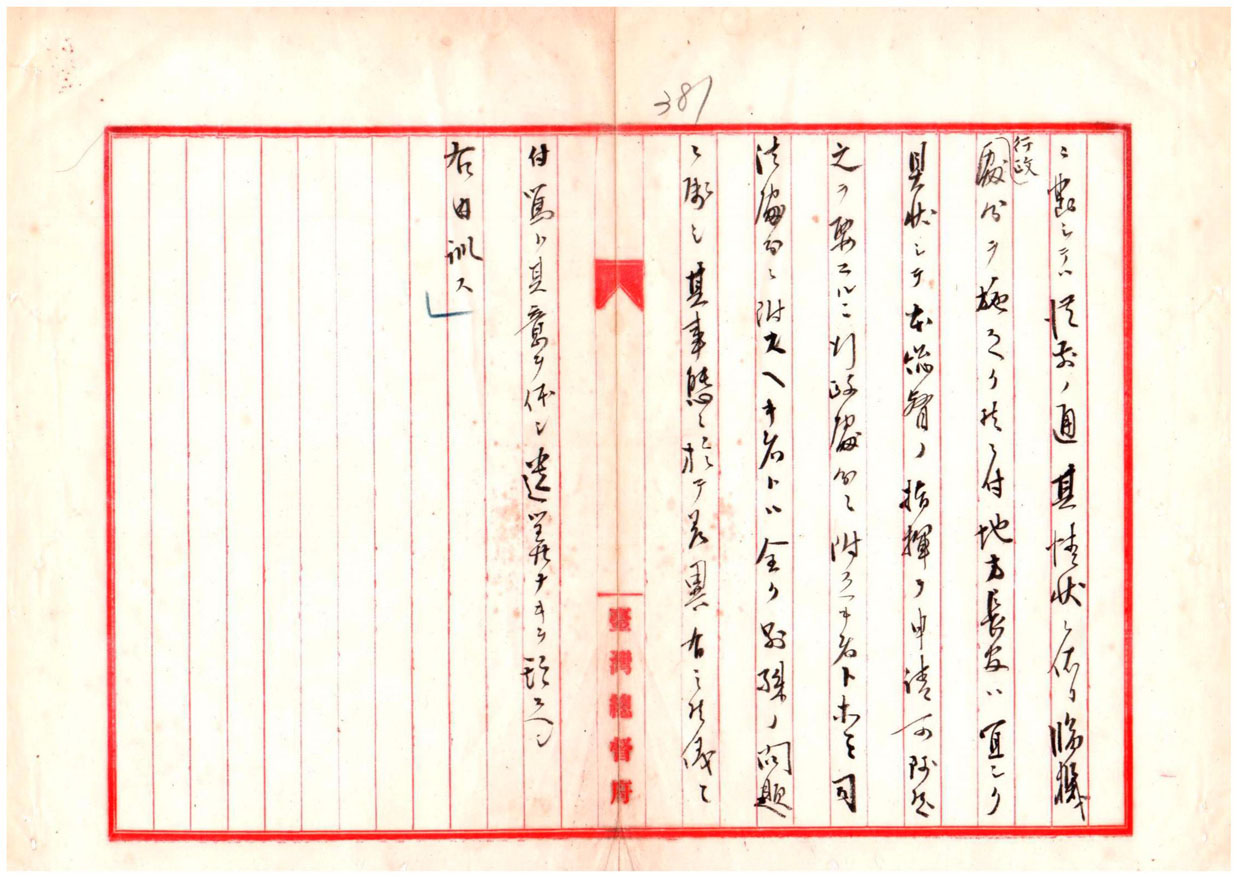 381
ニ對シテハ従前ノ通其情状ニ依リ臨機
行政
處分ヲ施スヘク就テハ付地方長官ハ宜シク
具状シテ本總督ノ指揮ヲ申請可致
之ヲ要スルニ行政處分ニ附スヘキ者ト司
法處分ニ附スヘキ者トハ全ク別種ノ問題
ニ属シ其事態ニ於テ差異有之候儀ニ
付篤ト其意ヲ体シ違算ナキヲ期スヘシ
右内訓ス
臺灣總督府